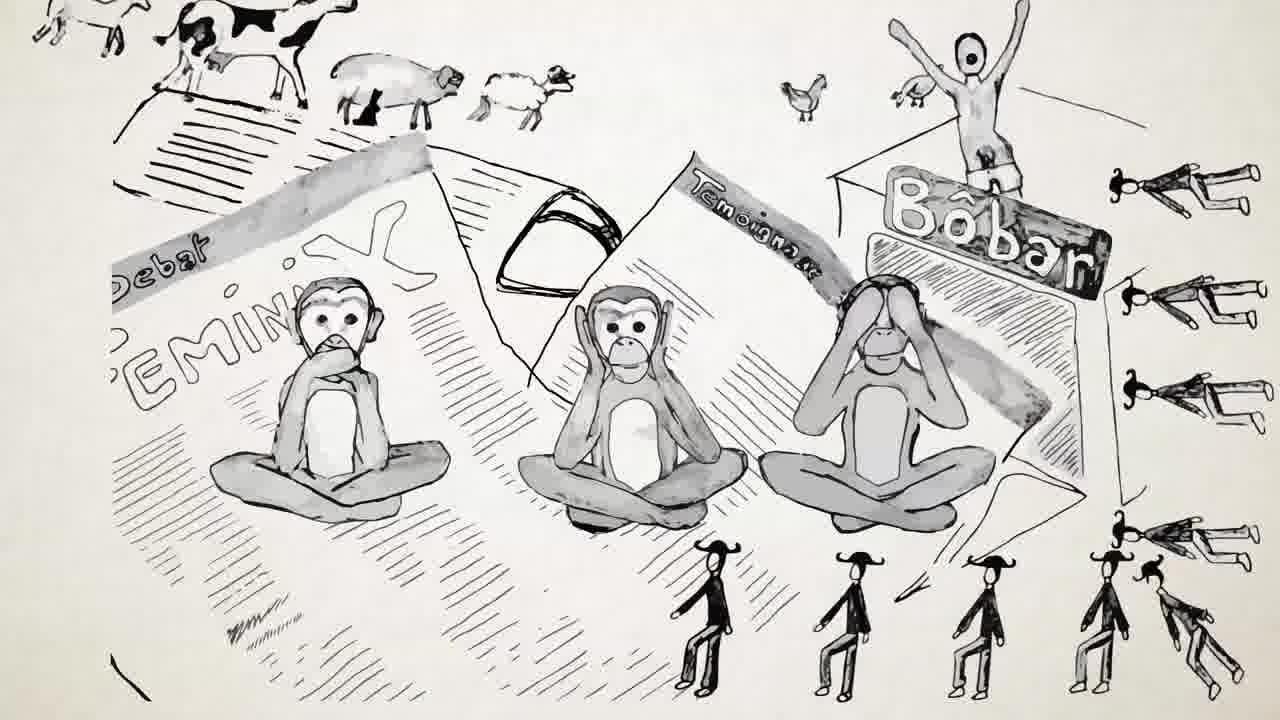 Debat
FEMINIX
Temoignage
Bôbar